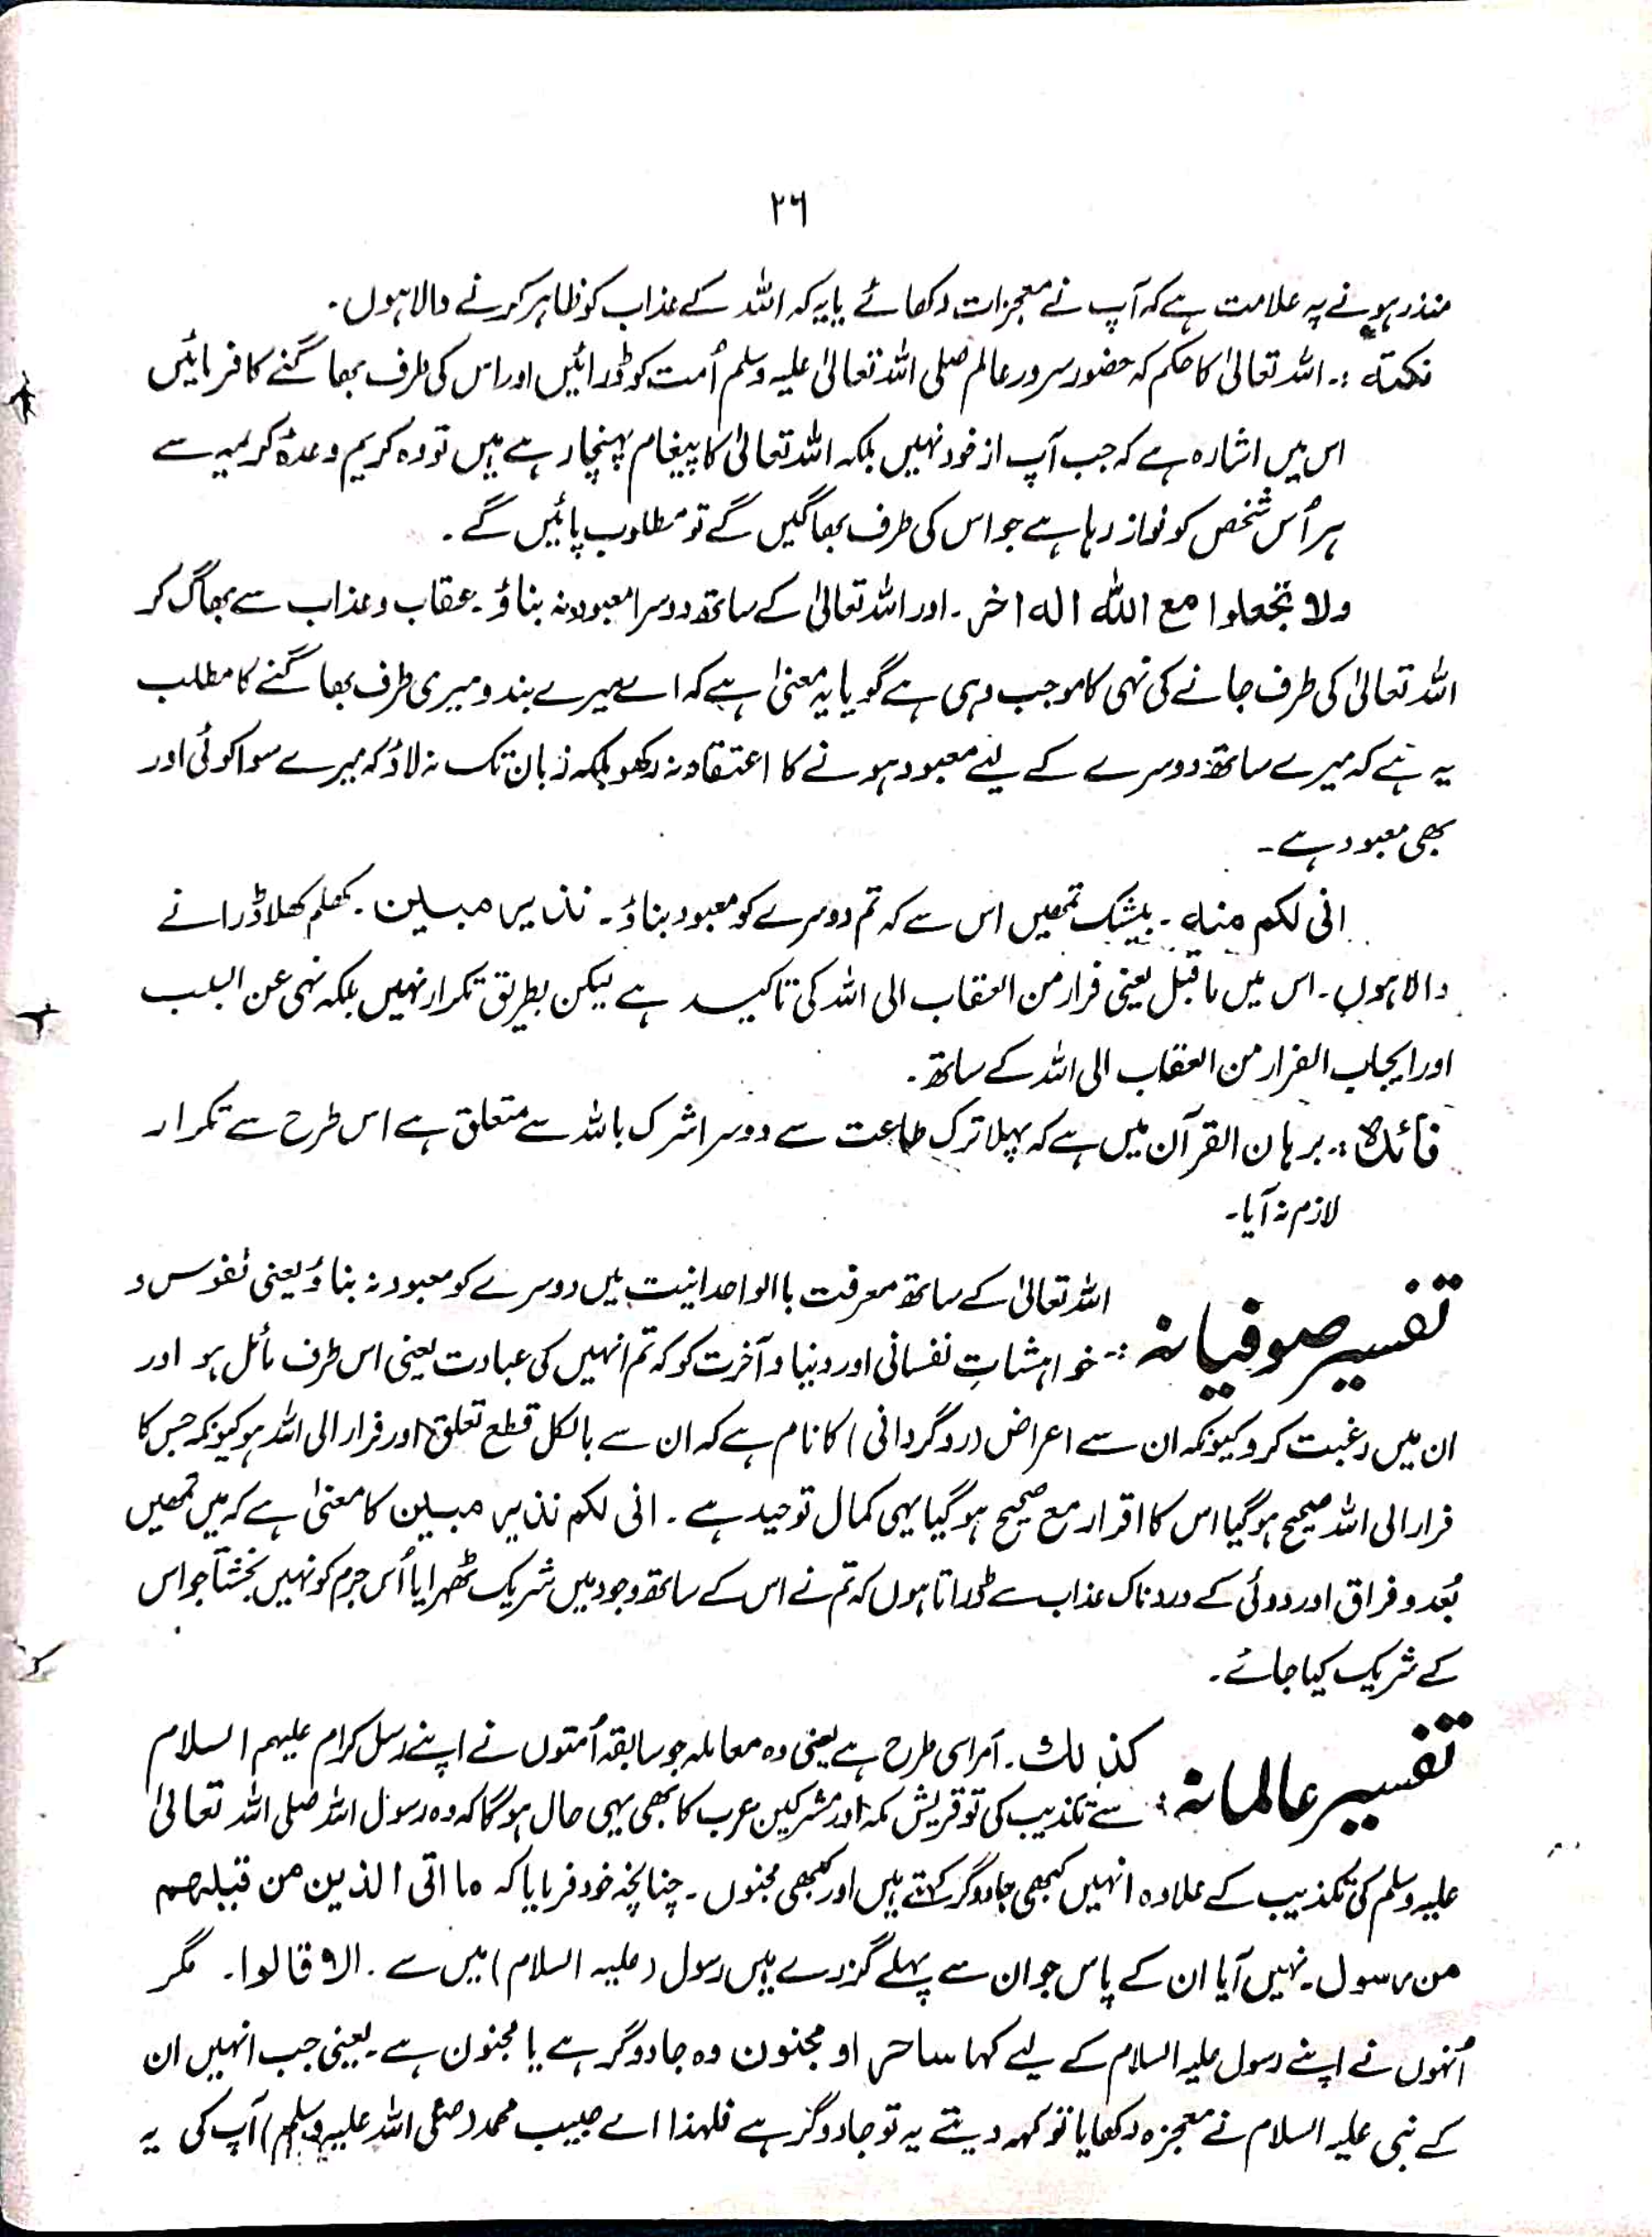 ۲۶
منذر ہونے پہ علامت ہے کہ آپ نے معجزات دکھائے یا یہ کہ اللہ کے عذاب کو ظاہر کرنے والا ہوں۔
نکتہ :۔ اللہ تعالیٰ کا حکم کہ حضور سرور عالم صلی اللہ تعالیٰ علیہ وسلم اُمت کو ڈرائیں اور اس کی طرف بھاگنے کا فرمائیں
اس میں اشارہ ہے کہ جب آپ از خود نہیں بلکہ اللہ تعالیٰ کا پیغام پہنچا رہے ہیں تو وہ کریم وعدۂ کریمہ سے
ہر اُس شخص کو نواز رہا ہے جو اس کی طرف بھاگیں گے تو مطلوب پائیں گے۔
ولا تجعلوا مع اللہ الہ اخر۔ اور اللہ تعالیٰ کے ساتھ دوسرا معبود نہ بناؤ۔ عقاب و عذاب سے بھاگ کر
اللہ تعالیٰ کی طرف جانے کی نہی کا موجب وہی ہے گویا یہ معنیٰ ہے کہ اے میرے بندو میری طرف بھاگنے کا مطلب
یہ ہے کہ میرے ساتھ دوسرے کے لیے معبود ہونے کا اعتقاد نہ رکھو بلکہ زبان تک نہ لاؤ کہ میرے سوا کوئی اور
بھی معبود ہے۔
انی لکم منہ۔ بیشک تمھیں اس سے کہ تم دوسرے کو معبود بناؤ۔ نذیر مبین۔ کھلم کھلا ڈرانے
والا ہوں۔ اس میں ماقبل یعنی فرار من العقاب الی اللہ کی تاکید ہے لیکن بطریق تکرار نہیں بلکہ نہی عن السبب
اور ایجاب الفرار من العقاب الی اللہ کے ساتھ۔
فائدہ :۔ برہان القرآن میں ہے کہ پہلا ترک طاعت سے دوسرا شرک باللہ سے متعلق ہے اس طرح سے تکرار
لازم نہ آیا۔
تفسیر صوفیانہ :۔ اللہ تعالیٰ کے ساتھ معرفت با الواحدانیت میں دوسرے کو معبود نہ بناؤ یعنی نفوس و
خواہشاتِ نفسانی اور دنیا و آخرت کو کہ تم انہیں کی عبادت یعنی اس طرف مائل ہو اور
ان میں رغبت کرو کیونکہ ان سے اعراض (روگردانی) کا نام ہے کہ ان سے بالکل قطع تعلق اور فرار الی اللہ ہو کیونکہ جس کا
فرار الی اللہ صحیح ہو گیا اس کا اقرار مع صحیح ہو گیا یہی کمال توحید ہے۔ انی لکم نذیر مبین کا معنیٰ ہے کہ میں تمھیں
بُعد و فراق اور دوئی کے دردناک عذاب سے ڈراتا ہوں کہ تم نے اس کے ساتھ وجود میں شریک ٹھہرایا اُس جرم کو نہیں بخشتا جو اس
کے شریک کیا جائے۔
تفسیر عالمانہ : کذلك۔ امر اسی طرح ہے یعنی وہ معاملہ جو سابقہ اُمتوں نے اپنے رسل کرام علیہم السلام
سے تکذیب کی تو قریش مکہ اور مشرکین عرب کا بھی یہی حال ہو گا کہ وہ رسول اللہ صلی اللہ تعالیٰ
علیہ وسلم کی تکذیب کے علاوہ انہیں کبھی جادوگر کہتے ہیں اور کبھی مجنوں۔ چنانچہ خود فرمایا کہ ما اتی الذین من قبلھم
من رسول۔ نہیں آیا ان کے پاس جو ان سے پہلے گزرے ہیں رسول (علیہ السلام) میں سے۔ الا قالوا۔ مگر
اُنہوں نے اپنے رسول علیہ السلام کے لیے کہا ساحر او مجنون وہ جادوگر ہے یا مجنون ہے۔ یعنی جب انہیں ان
کے نبی علیہ السلام نے معجزہ دکھایا تو کہہ دیتے یہ تو جادوگر ہے فلہذا اے حبیب محمد (صلی اللہ علیہ وسلم) آپ کی یہ